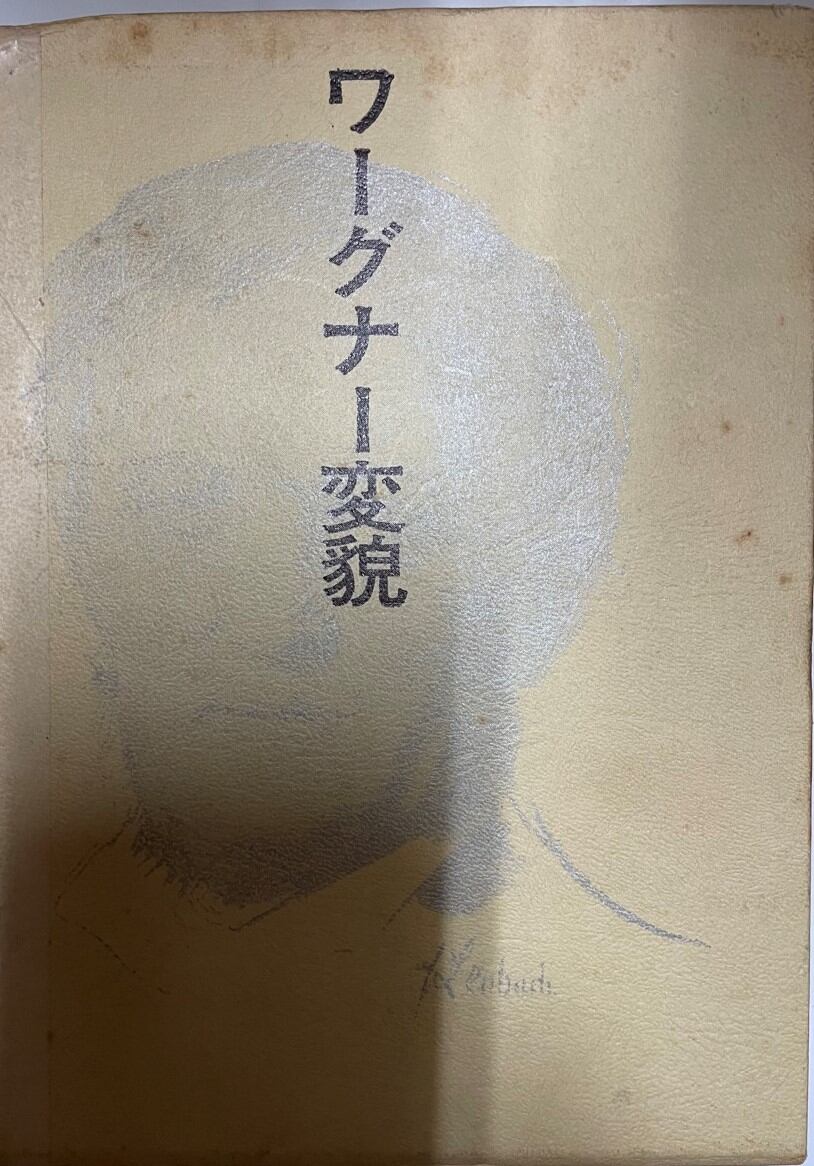 ワーグナー変貌
Lenbach